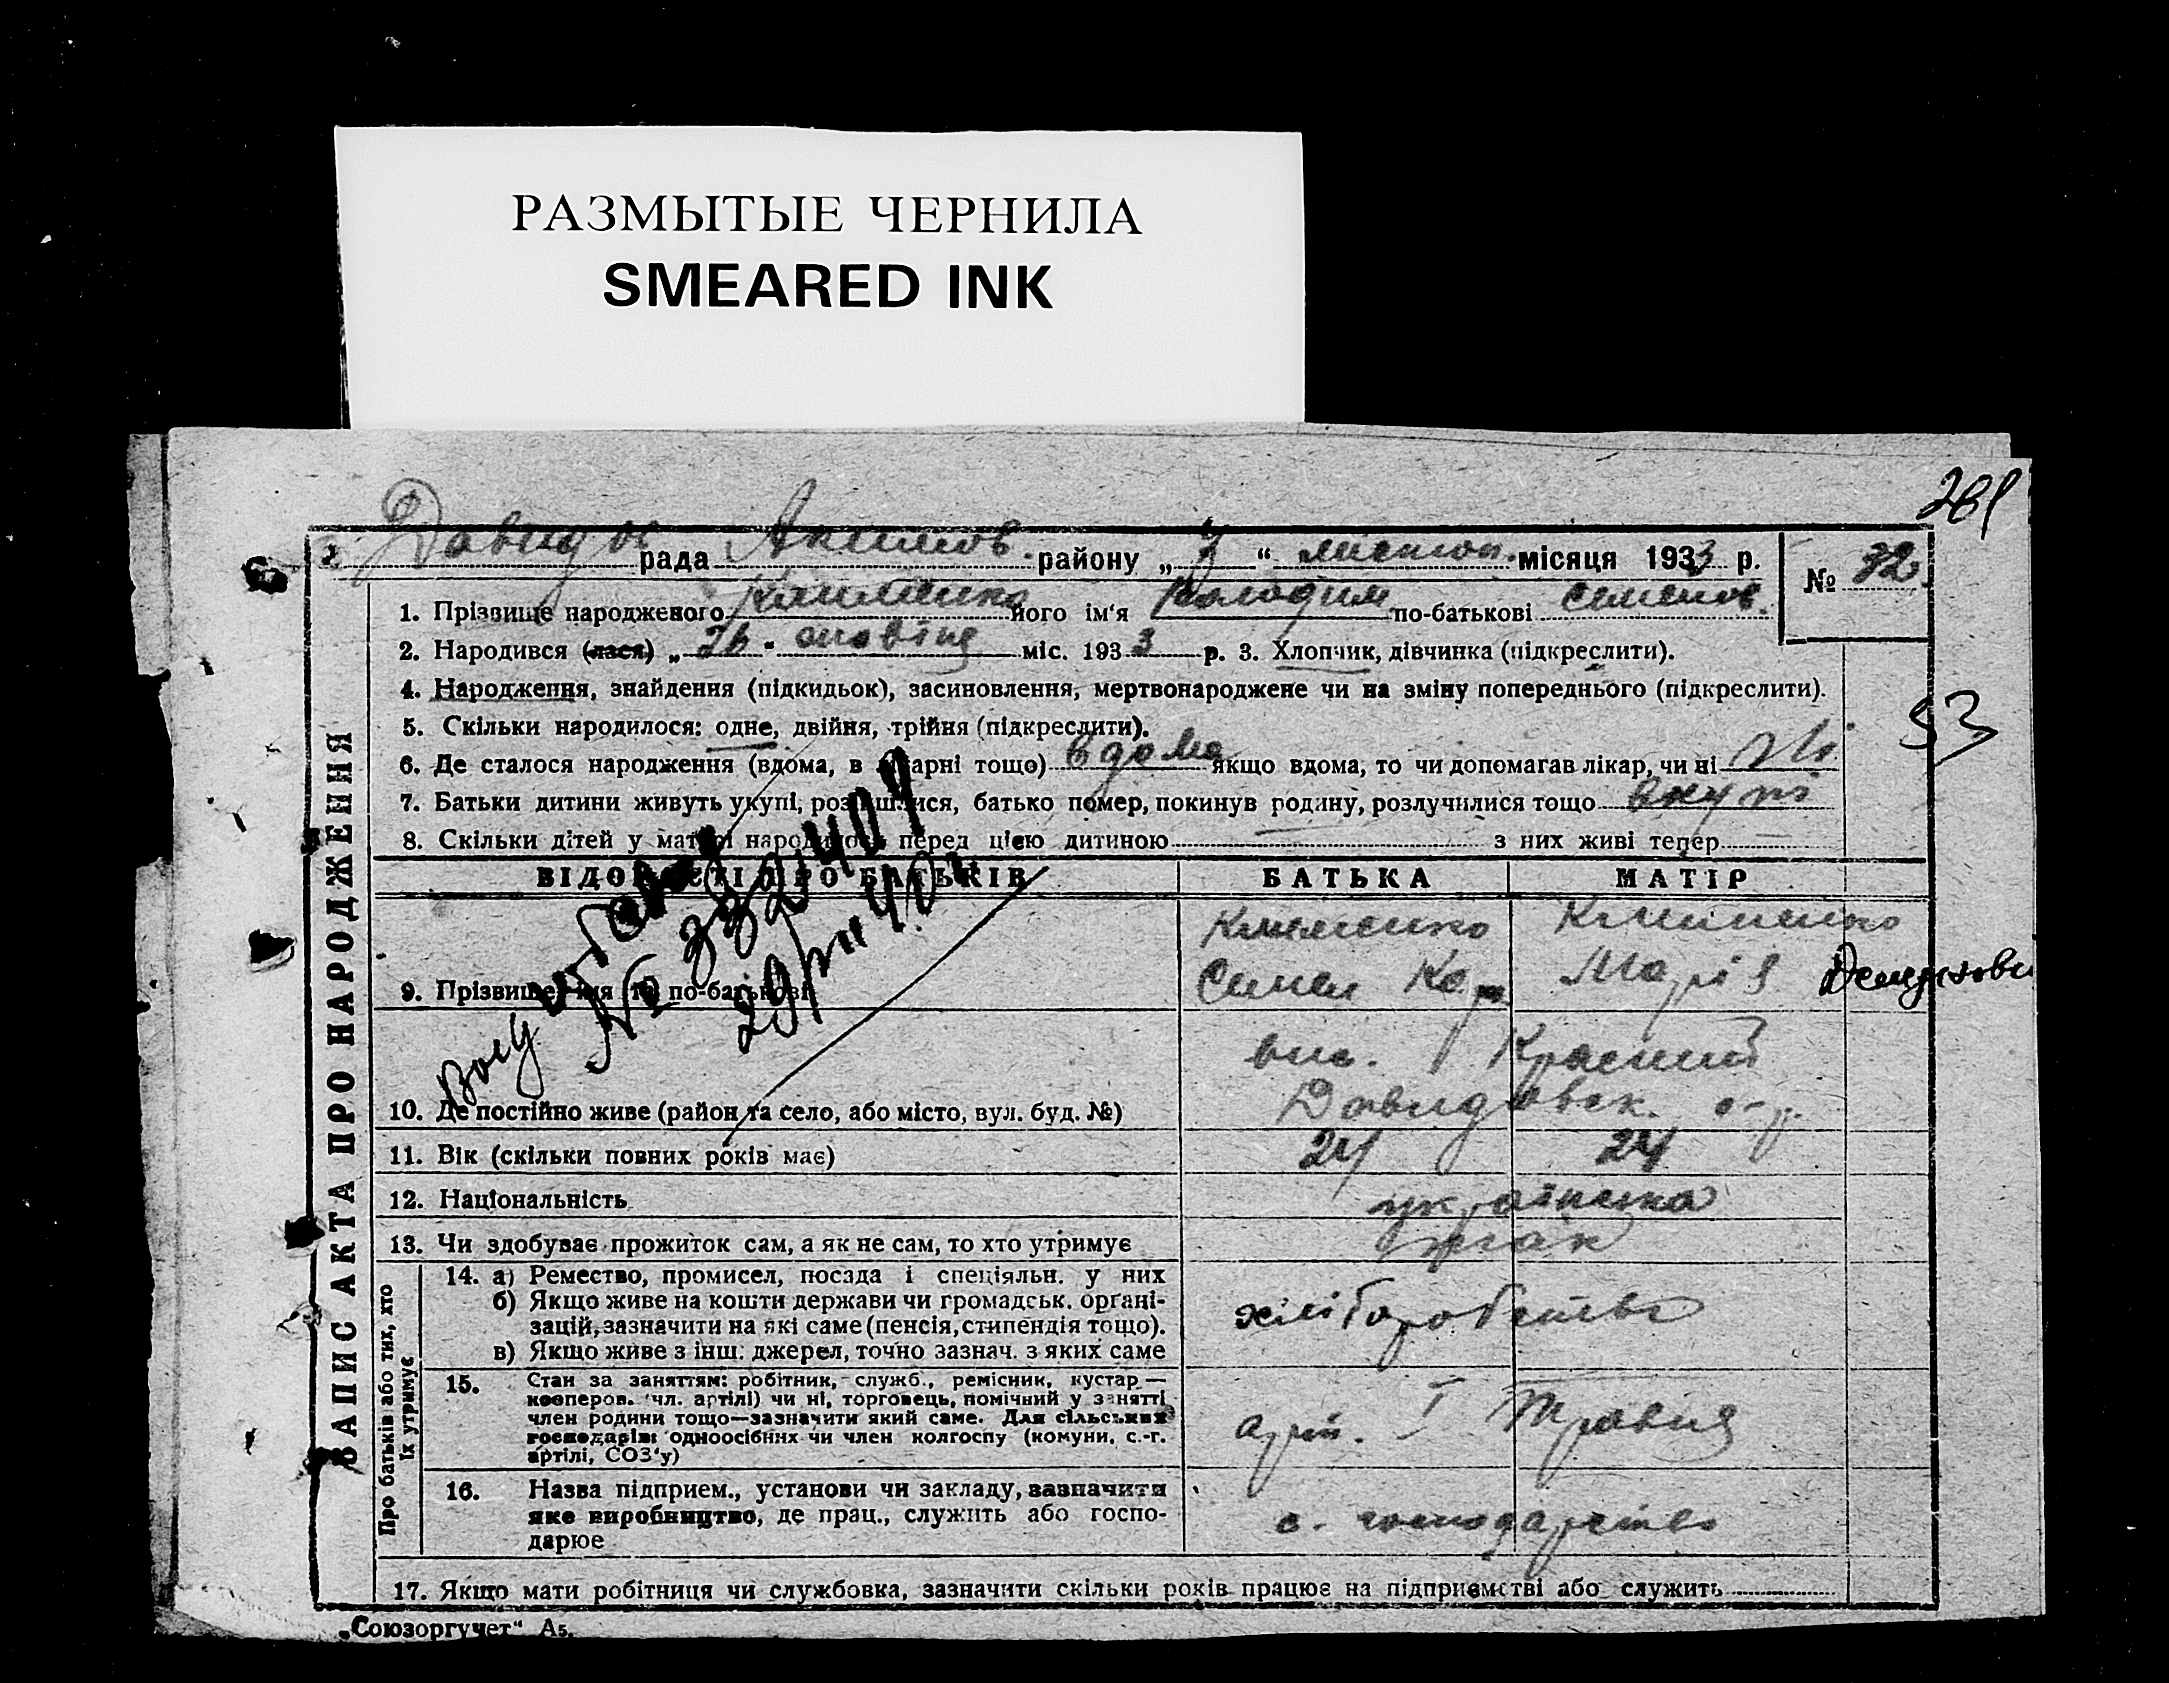 РАЗМЫТЫЕ ЧЕРНИЛА
SMEARED INK
281
Давидов рада Акимов. району „ 7 “ листоп. місяця 1933 р. № 82
1. Прізвище народженого Клименко його ім‘я Володим по-батькові Семенов.
2. Народився (лася) „ 26 “ жовтня міс. 1933 р. 3. Хлопчик, дівчинка (підкреслити).
4. Народження, знайдення (підкидьок), засиновлення, мертвонароджене чи на зміну попереднього (підкреслити).
53
5. Скільки народилося: одне, двійня, трійня (підкреслити).
6. Де сталося народження (вдома, в лікарні тощо) вдома якщо вдома, то чи допомагав лікар, чи ні ні
7. Батьки дитини живуть укупі, розійшлися, батько помер, покинув родину, розлучилися тощо вкупі
8. Скільки дітей у матері народилось перед цією дитиною з них живі тепер
ВІДОМОСТІ ПРО БАТЬКІВ БАТЬКА МАТІР
9. Прізвище, ім‘я та по-батькові
Клименко Клименко
Семен Кар Марія
10. Де постійно живе (район та село, або місто, вул. буд. №)
вис. Красний
Давидовск. с-р.
11. Вік (скільки повних років має) 24 24
12. Національність українська
13. Чи здобуває прожиток сам, а як не сам, то хто утримує
14. а) Ремество, промисел, посада і спеціяльн. у них
б) Якщо живе на кошти держави чи громадськ. органі-
зацій, зазначити на які саме (пенсія, стипендія тощо).
в) Якщо живе з інш. джерел, точно зазнач. з яких саме
хліборобство
15. Стан за заняттям: робітник, служб., ремісник, кустар —
кооперов. (чл. артілі) чи ні, торговець, помічний у занятті
член родини тощо—зазначити який саме. Для сільських
господарів: одноосібних чи член колгоспу (комуни, с.-г.
артілі, СОЗ‘у)
арт. І Травня
16. Назва підприєм., установи чи закладу, зазначити
яке виробництво, де прац., служить або госпо-
дарює
с. господарство
17. Якщо мати робітниця чи службовка, зазначити скільки років працює на підприємстві або служить
ЗАПИС АКТА ПРО НАРОДЖЕННЯ
Про батьків або тих, хто
їх утримує
№ 332404
„Союзоргучет“ А5.